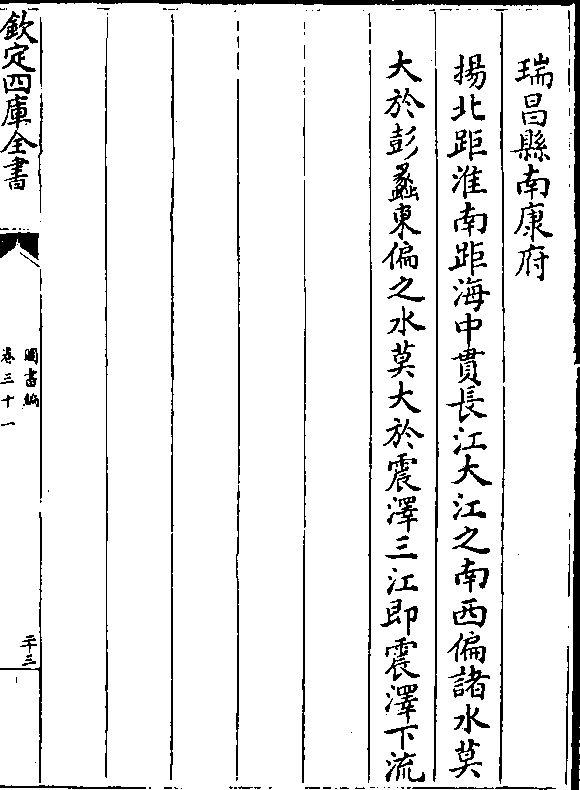 瑞昌縣南康府
揚北距淮南距海中貫長江大江之南西偏諸水莫
大於彭蠡東偏之水莫大於震澤三江即震澤下流
欽定四庫全書
圖書編
卷三十一
二十三